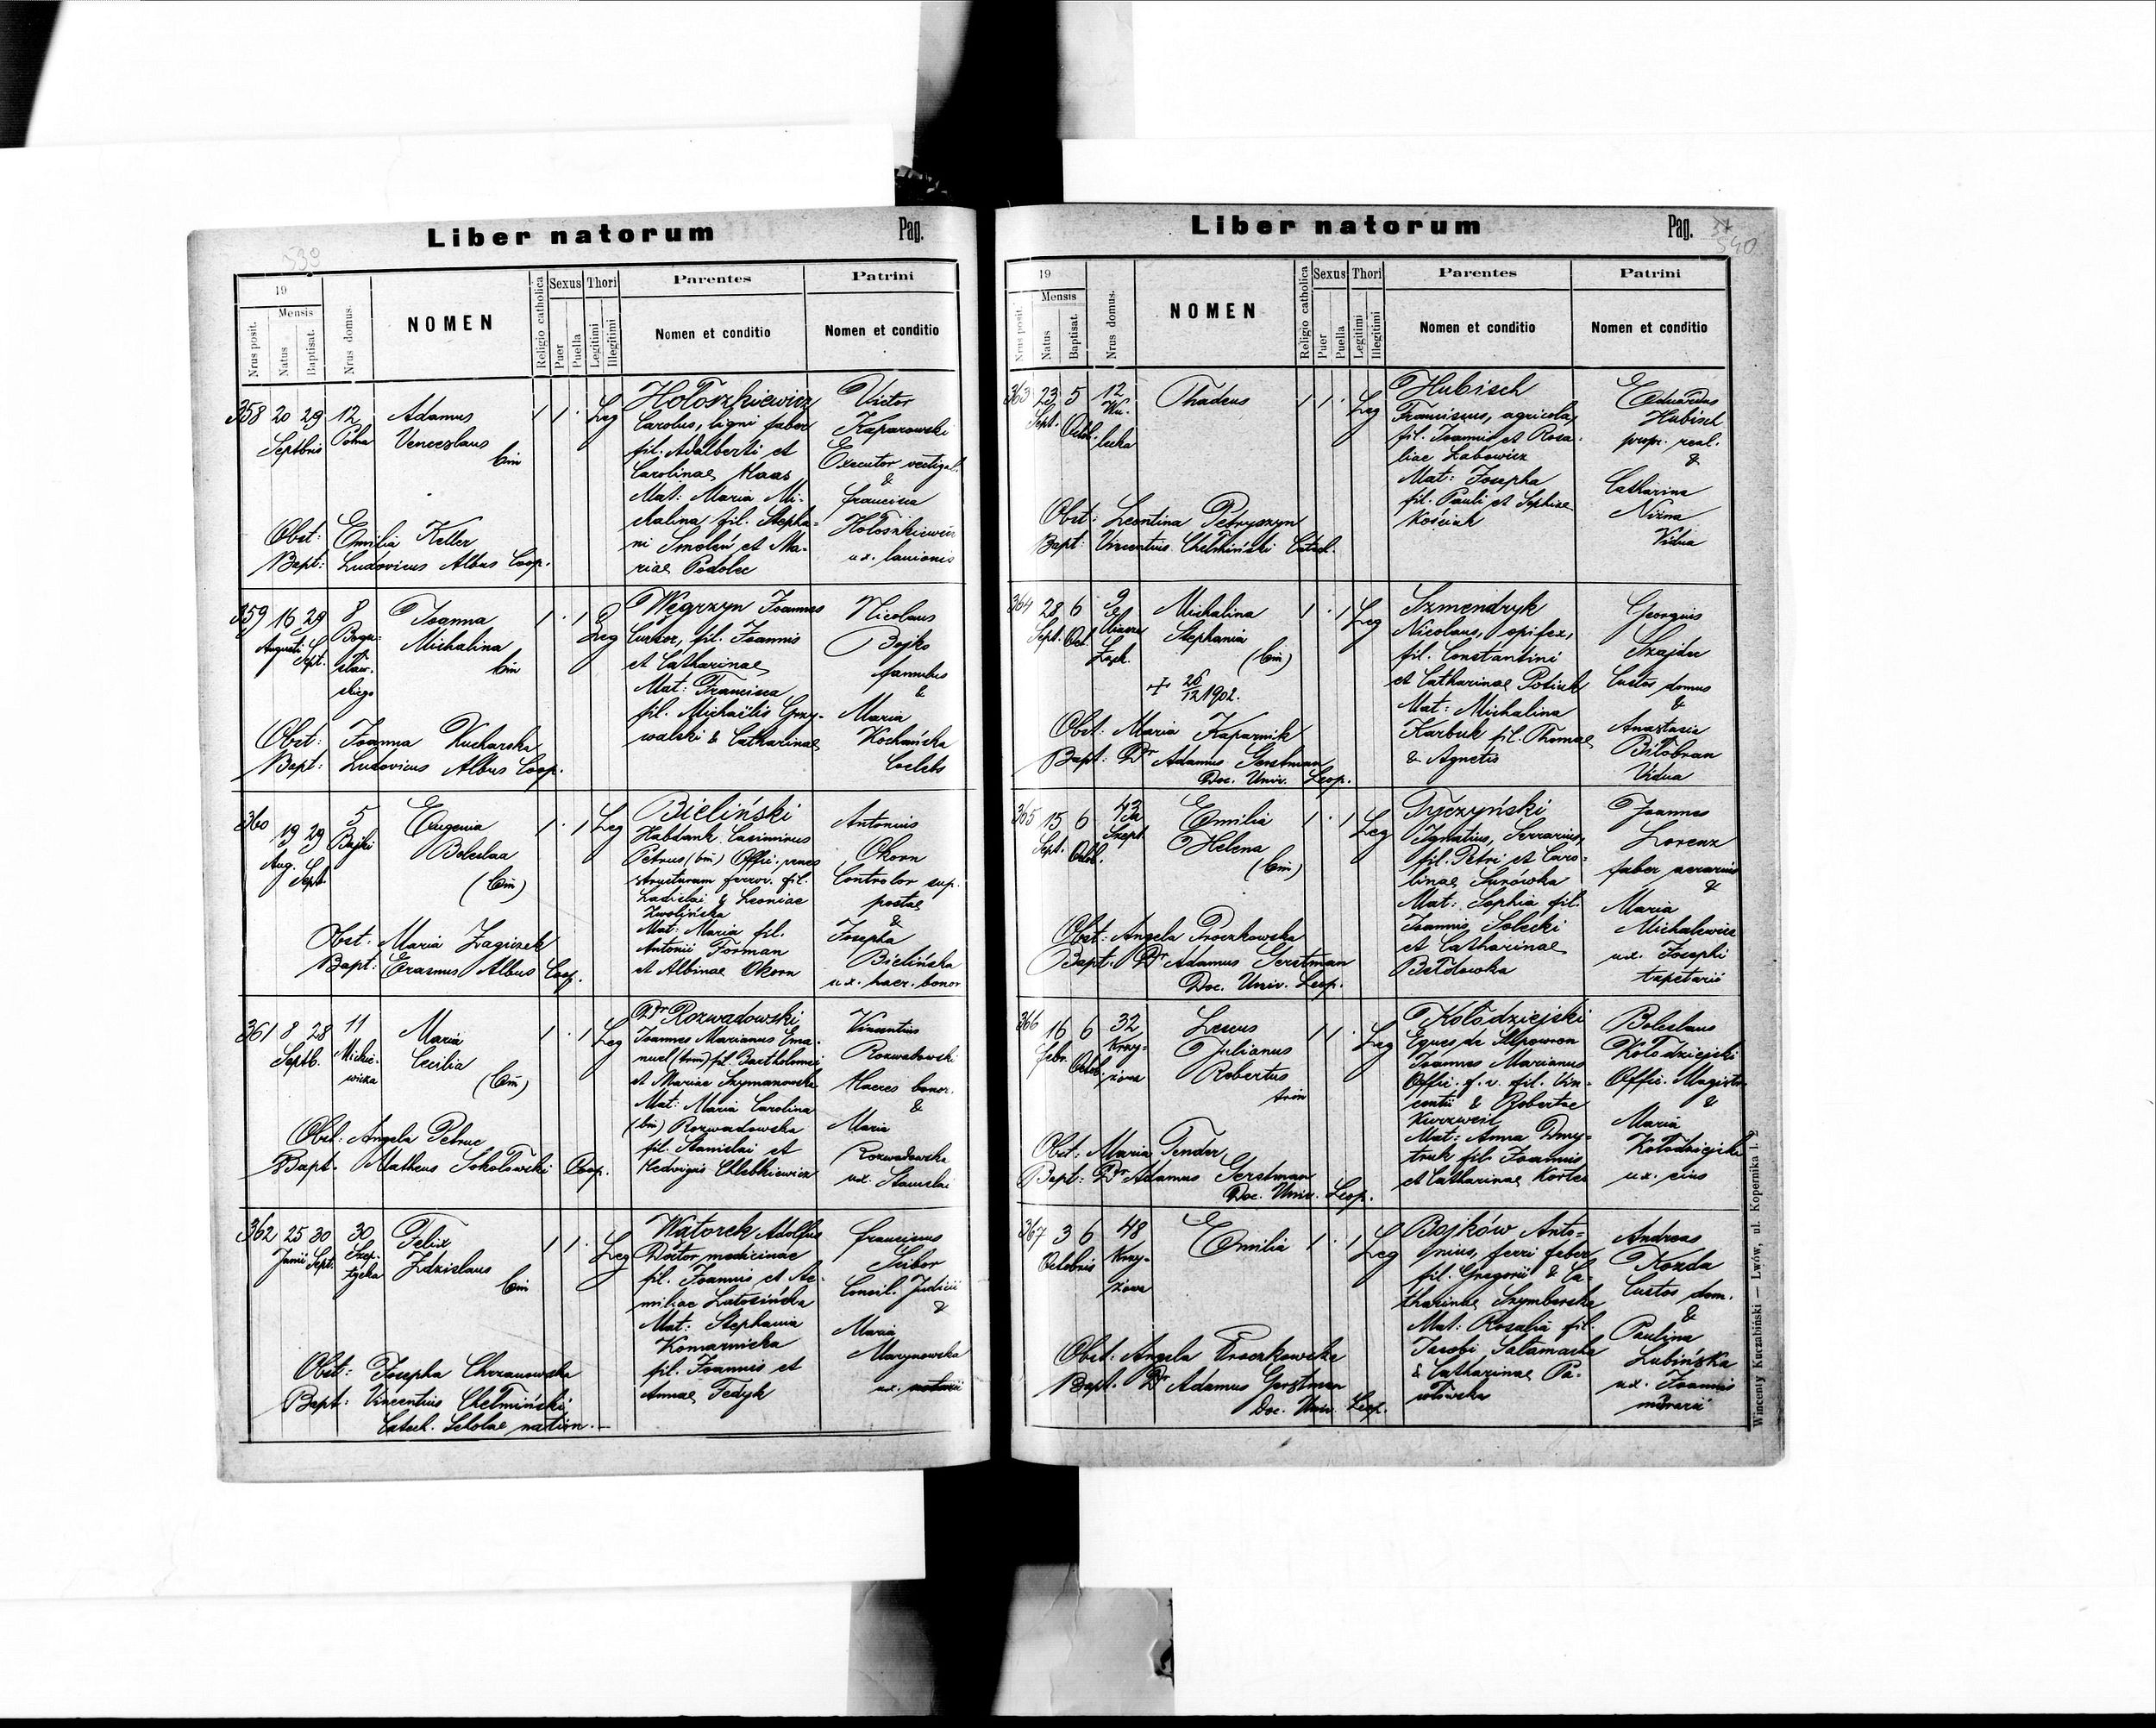 Liber natorum
Pag.
539
19
Mensis
Nrus posit.
Natus
Baptisat.
Nrus domus.
NOMEN
Religio catholica
Sexus
Puer
Puella
Thori
Legitimi
Illegitimi
Parentes
Nomen et conditio
Patrini
Nomen et conditio
358 20 29 12
Septbris
Adamus
Venceslaus
bin
1 1 · Leg
Hołoszkiewicz
Carolus, ligni faber
fil. Adalberti et
Carolinae Haas
Mat: Maria Mi-
chalina, fil. Stepha-
ni Smoleń et Ma-
riae Podolec
Victor
Kaparowski
Executor vectigal.
&
Francisca
Hołoszkiewicz
ux. lanionis
Obst: Emilia Keller
Bapt: Ludovicus Albus Coop.
359 16 29 8
Augusti Sept.
Bogu-
sław-
skiego
Joanna
Michalina
bin
1 · 1 Leg
Węgrzyn Joannes
Cursor, fil. Joannis
et Catharinae
Mat: Francisca
fil. Michaëlis Grzy-
walski & Catharinae
Nicolaus
Bojko
famulus
&
Maria
Kochańska
Coelebs
Obst: Joanna Kucharska
Bapt: Ludovicus Albus Coop.
360 19 29 5
Aug. Sept.
Bajki
Eugenia
Boleslaa
(bin)
1 · 1 Leg
Bieliński
Habdank Casimirus
Petrus (bin) Offic. penes
structuram ferrov. fil.
Ladislai & Leoniae
Zwolińska
Mat: Maria fil.
Antonii Forman
et Albinae Okorn
Antonius
Okorn
Controlor sup.
postae
&
Josepha
Bielińska
ux. haer. bonor
Obst: Maria Zagórzek
Bapt: Erasmus Albus Coop.
361 8 28 11
Septb.
Mickie-
wicza
Maria
Cecilia
(bin)
1 · 1 Leg
Dr Rozwadowski
Joannes Marianus Ema-
nuel (trin) fil. Bartholomei
et Mariae Szymanowska
Mat: Maria Carolina
(bin) Rozwadowska
fil. Stanislai et
Hedvigis Chlebkiewicz
Vincentius
Rozwadowski
Haeres bonor.
&
Maria
Rozwadowska
ux. Stanislai
Obst: Angela Petruc
Bapt. Matheus Sokołowski Coop.
362 25 30 30
Junii Sept.
Szep-
tycka
Felix
Zdzislaus
bin
1 1 · Leg
Wątorek Adolfus
Doctor medicinae
fil. Joannis et Ae-
miliae Latosińska
Mat: Stephania
Komarnicka
fil. Joannis et
Annae Fedyk
Franciscus
Scibor
Consil. Judicii
&
Maria
Marynowska
ux. notarii
Obst: Josepha Chrzanowska
Bapt: Vincentius Chełmiński,
Catech. Scholae nation.
Liber natorum
Pag.
540
19
Mensis
Nrus posit.
Natus
Baptisat.
Nrus domus.
NOMEN
Religio catholica
Sexus
Puer
Puella
Thori
Legitimi
Illegitimi
Parentes
Nomen et conditio
Patrini
Nomen et conditio
363 23 5 12
Sept. Octob.
Thadeus
1 1 · Leg
Hubisch
Franciscus, agricola,
fil. Joannis et Rosa-
liae Labowicz
Mat: Josepha
fil. Pauli et Sophiae
Kościuk
Eduardus
Hubisch
propr. real.
&
Catharina
Nizna
Vidua
Obst: Leontina Petryszyn
Bapt: Vincentius Chełmiński Catech.
364 28 6 9
Sept. Oct.
Michalina
Stephania
(bin)
+ 26/12 1902.
1 · 1 Leg
Szmendryk
Nicolaus, opifex,
fil. Constantini
et Catharinae Potiuk
Mat: Michalina
Karbuk fil. Thomae
& Agnetis
Georgius
Szajder
Custos domus
&
Anastasia
Biłobran
Vidua
Obst: Maria Kaparnik
Bapt: Dr Adamus Gerstman
Doc. Univ. Leop.
365 15 6 43
Sept. Octob.
Szept.
Emilia
Helena
(bin)
1 · 1 Leg
Tyczyński
Ignatius, Serrarius,
fil. Petri et Caro-
linae Surówka
Mat: Sophia fil.
Joannis Solecki
et Catharinae
Bełdowska
Joannes
Lorenz
faber aerarius
&
Maria
Michalewicz
ux. Josephi
tapetarii
Obst: Angela Proczkowska
Bapt: Dr Adamus Gerstman
Doc. Univ. Leop.
366 16 6 32
Febr. Octob.
Krzy-
żowa
Lescus
Julianus
Robertus
trin
1 1 · Leg
Kołodziejski
Eques de Slepowron
Joannes Marianus
Offic. f. v. fil. Vin-
centii & Robertae
Kurzweil
Mat: Anna Dmy-
truk fil. Joannis
et Catharinae Kortes
Boleslaus
Kołodziejski
Offic. Magistr.
&
Maria
Kołodziejska
ux. eius
Obst: Maria Fendor,
Bapt: Dr Adamus Gerstman
Doc. Univ. Leop.
367 3 6 48
Octobris
Krzy-
żowa
Emilia
1 · 1 Leg
Bojków Anto-
nius, ferri faber,
fil. Gregorii & Ca-
tharinae Szymborska
Mat: Rosalia fil.
Jacobi Salamacha
& Catharinae Pa-
włowska
Andreas
Kozda
Custos dom.
&
Paulina
Lubińska
ux. Joannis
murarii
Obst: Angela Proczkowska
Bapt. Dr Adamus Gerstman
Doc. Univ. Leop.
Wincenty Kuczabiński — Lwów, ul. Kopernika l. 2